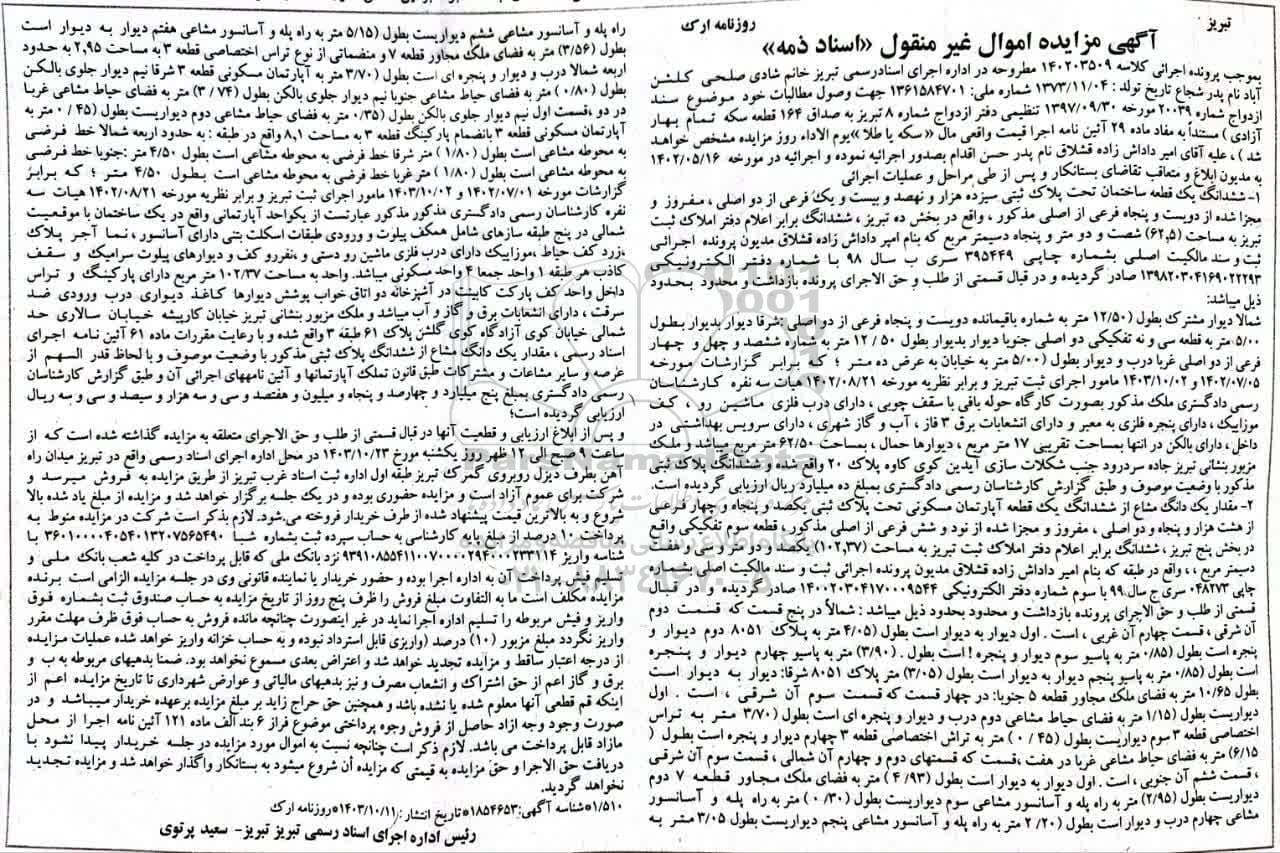 تبریز
روزنامه ارک
آگهی مزایده اموال غیر منقول «اسناد ذمه»
بموجب پرونده اجرائی کلاسه ۱۴۰۲۰۳۵۰۹ مطروحه در اداره اجرای اسنادرسمی تبریز خانم شادی صلحی گلشن
آباد نام پدر شجاع تاریخ تولد : ۱۳۷۳/۱۱/۰۴ شماره ملی: ۱۳۶۱۵۸۴۷۰۱ جهت وصول مطالبات خود موضوع سند
ازدواج شماره ۲۰۰۳۹ مورخه ۱۳۹۷/۰۹/۳۰ تنظیمی دفتر ازدواج شماره ۸ تبریز به صداق ۱۶۴ قطعه سکه تمام بهار
آزادی ) مستنداً به مفاد ماده ۲۹ آئین نامه اجرا قیمت واقعی مال « سکه یا طلا »یوم الاداء روز مزایده مشخص خواهد
شد ) ، علیه آقای امیر داداش زاده قشلاق نام پدر حسن اقدام بصدور اجرائیه نموده و اجرائیه در مورخه ۱۴۰۲/۰۵/۱۶
به مدیون ابلاغ و متعاقب تقاضای بستانکار و پس از طی مراحل و عملیات اجرائی
۱- ششدانگ یک قطعه ساختمان تحت پلاک ثبتی سیزده هزار و نهصد و بیست و یک فرعی از دو اصلی ، مفروز و
مجزا شده از دویست و پنجاه فرعی از اصلی مذکور ، واقع در بخش ده تبریز ، ششدانگ برابر اعلام دفتر املاک ثبت
تبریز به مساحت (۶۲,۵) شصت و دو متر و پنجاه دسیمتر مربع که بنام امیر داداش زاده قشلاق مدیون پرونده اجرائی
ثبت و سند مالکیت اصلی بشماره چاپی ۳۹۵۴۴۹ سری ب سال ۹۸ با شماره دفتر الکترونیکی
۱۳۹۸۲۰۳۰۴۱۶۹۰۲۲۲۹۳ صادر گردیده و در قبال قسمتی از طلب و حق الاجرای پرونده بازداشت و محدود بحدود
ذیل میباشد:
شمالا دیوار مشترک بطول (۱۲/۵۰ متر به شماره باقیمانده دویست و پنجاه فرعی از دو اصلی :شرقا دیوار بدیوار بطول
۵/۰۰متر به قطعه سی و نه تفکیکی دو اصلی جنوبا دیوار بدیوار بطول ۵۰ / ۱۲ متر به شماره ششصد و چهل و چهار
فرعی از دو اصلی غربا درب و دیوار بطول (۵/۰۰ متر به خیابان به عرض ده متر ؛ که برابر گزارشات مورخه
۱۴۰۲/۰۷/۰۵ و ۱۴۰۳/۱۰/۰۲ مامور اجرای ثبت تبریز و برابر نظریه مورخه ۱۴۰۲/۰۸/۲۱ هیات سه نفره کارشناسان
رسمی دادگستری ملک مذکور بصورت کارگاه حوله بافی با سقف چوبی ، دارای درب فلزی ماشین رو ، کف
موزاییک ، دارای پنجره فلزی به معبر و دارای انشعابات برق ۳ فاز ، آب و گاز شهری ، دارای سرویس بهداشتی در
داخل ، دارای بالکن در انتها بمساحت تقریبی ۱۷ متر مربع ، دیوارها حمال ، بمساحت ۶۲/۵۰ متر مربع میباشد ، ملک
مزبور بنشانی تبریز جاده سردرود جنب شکلات سازی آیدین کوی کاوه پلاک ۲۰ واقع شده و ششدانگ پلاک ثبتی
مذکور با وضعیت موصوف و طبق گزارش کارشناسان رسمی دادگستری بمبلغ ده میلیارد ریال ارزیابی گردیده است.
۲- مقدار یک دانگ مشاع از ششدانگ یک قطعه آپارتمان مسکونی تحت پلاک ثبتی یکصد و پنجاه و چهار فرعی
از هشت هزار و پنجاه و دو اصلی ، مفروز و مجزا شده از نود و شش فرعی از اصلی مذکور، قطعه سوم تفکیکی واقع
در بخش پنج تبریز ، ششدانگ برابر اعلام دفتر املاک ثبت تبریز به مساحت (۱۰۲,۳۷) یکصد و دو متر و سی و هفت
دسیمتر مربع ، ، واقع در طبقه که بنام امیر داداش زاده قشلاق مدیون پرونده اجرائی ثبت و سند مالکیت اصلی بشماره
چاپی ۰۴۸۲۷۳ سری ج سال ۹۹ با سوم شماره دفتر الکترونیکی ۱۴۰۰۲۰۳۰۴۱۷۰۰۰۹۵۴۴ صادر گردیده و در قبال
قسمتی از طلب و حق الاجرای پرونده بازداشت و محدود بحدود ذیل میباشد : شمالاً در پنج قسمت که قسمت دوم
آن شرقی ، قسمت چهارم آن غربی ، است . اول دیوار به دیوار است بطول (۴/۰۵ متر به پلاک ۸۰۵۱ دوم دیوار و
پنجره است بطول (۰/۸۵ متر به پاسیو سوم دیوار و پنجره ! است بطول . (۳/۹۰) متر به پاسیو چهارم دیوار و پنجره
است بطول (۰/۸۵ متر به پاسیو پنجم دیوار به دیوار است بطول (۳/۰۵) متر پلاک ۸۰۵۱ شرقا: دیوار به دیوار است
بطول ۱۰/۶۵ متر به فضای ملک مجاور قطعه ۵ جنوبا: در چهار قسمت که قسمت سوم آن شرقی ، است . اول
دیواریست بطول (۱/۱۵ متر به فضای حیاط مشاعی دوم درب و دیوار و پنجره ای است بطول (۳/۷۰ متر به تراس
اختصاصی قطعه ۳ سوم دیواریست بطول (۴۵ / ۰) متر به تراش اختصاصی قطعه ۳ چهارم دیوار و پنجره است بطول (
۶/۱۵) متر به فضای حیاط مشاعی غربا در هفت ،قسمت که قسمتهای دوم و چهارم آن شمالی ، قسمت سوم آن شرقی
، قسمت ششم آن جنوبی ، است . اول دیوار به دیوار است بطول (۹۳/ ۴) متر به فضای ملک مجاور قطعه ۷ دوم
دیواریست بطول (۲/۹۵) متر به راه پله و آسانسور مشاعی سوم دیواریست بطول (۳۰/ ۰) متر به راه پله و آسانسور
مشاعی چهارم درب و دیوار است بطول (۲۰/ ۲ متر به راه پله و آسانسور مشاعی پنجم دیواریست بطول ۳/۰۵ متر به
راه پله و آسانسور مشاعی ششم دیواریست بطول (۵/۱۵ متر به راه پله و آسانسور مشاعی هفتم دیوار به دیوار است
بطول (۳/۵۶) متر به فضای ملک مجاور قطعه ۷ و منضماتی از نوع تراس اختصاصی قطعه ۳ به مساحت ۲,۹۵ به حدود
اربعه شمالا درب و دیوار و پنجره ای است بطول (۳/۷۰ متر به آپارتمان مسکونی قطعه ۳ شرقا نیم دیوار جلوی بالکن
بطول (۰/۸۰ ) متر به فضای حیاط مشاعی جنوبا نیم دیوار جلوی بالکن بطول (۷۴ / ۳) متر به فضای حیاط مشاعی غربا
در دو ،قسمت اول نیم دیوار جلوی بالکن بطول (۰/۳۵ متر به فضای حیاط مشاعی دوم دیواریست بطول (۴۵ / ۰ متر به
آپارتمان مسکونی قطعه ۳ بانضمام پارکینگ قطعه ۳ به مساحت ۸,۱ واقع در طبقه : به حدود اربعه شمالا خط فرضی
به محوطه مشاعی است بطول (۱/۸۰ ) متر شرقا خط فرضی به محوطه مشاعی است بطول ۴/۵۰ متر :جنوبا خط فرضی
به محوطه مشاعی است بطول (۱/۸۰ ) متر غربا خط فرضی به محوطه مشاعی است بطول ۴/۵۰ متر ؛ که برابر
گزارشات مورخه ۱۴۰۲/۰۷/۰۱ و ۱۴۰۳/۱۰/۰۲ مامور اجرای ثبت تبریز و برابر نظریه مورخه ۱۴۰۲/۰۸/۲۱ هیات سه
نفره کارشناسان رسمی دادگستری مذکور مذکور عبارتست از یکواحد آپارتمانی واقع در یک ساختمان با موقعیت
شمالی در پنج طبقه سازهای شامل همکف پیلوت و ورودی طبقات اسکلت بتنی دارای آسانسور ، نما آجر پلاک
،زرد کف حیاط ،موزاییک دارای درب فلزی ماشین رو دستی و ،نفررو کف و دیوارهای پیلوت سرامیک و سقف
کاذب هر طبقه ۱ واحد جمعا ۴ واحد مسکونی میباشد. واحد به مساحت ۱۰۲/۳۷ متر مربع دارای پارکینگ و تراس
داخل واحد کف پارکت کابینت در آشپزخانه دو اتاق خواب پوشش دیوارها کاغذ دیواری درب ورودی ضد
سرقت ، دارای انشعابات برق و گاز و آب میباشد و ملک مزبور بنشانی تبریز خیابان کارپیشه خیابان سالاری حد
شمالی خیابان کوی آزادگاه کوی گلشن پلاک ۶۱ طبقه ۳ واقع شده و با رعایت مقررات ماده ۶۱ آئین نامه اجرای
اسناد رسمی ، مقدار یک دانگ مشاع از ششدانگ پلاک ثبتی مذکور با وضعیت موصوف و با لحاظ قدر السهم از
عرصه و سایر مشاعات و مشترکات طبق قانون تملک آپارتمانها و آئین نامههای اجرائی آن و طبق گزارش کارشناسان
رسمی دادگستری بمبلغ پنج میلیارد و چهارصد و پنجاه و میلیون و هفتصد و سی و سه هزار و سیصد و سی و سه ریال
ارزیابی گردیده است؛
و پس از ابلاغ ارزیابی و قطعیت آنها در قبال قسمتی از طلب و حق الاجرای متعلقه به مزایده گذاشته شده است که از
ساعت ۹ صبح الی ۱۲ ظهر روز یکشنبه مورخ ۱۴۰۳/۱۰/۲۳ در محل اداره اجرای اسناد رسمی واقع در تبریز میدان راه
آهن بطرف دیزل روبروی گمرک تبریز طبقه اول اداره ثبت اسناد غرب تبریز از طریق مزایده به فروش میرسد و
شرکت برای عموم آزاد است و مزایده حضوری بوده و در یک جلسه برگزار خواهد شد و مزایده از مبلغ یاد شده بالا
شروع و به بالاترین قیمت پیشنهاد شده از طرف خریدار فروخته می‌شود. لازم بذکر است شرکت در مزایده منوط به
پرداخت ۱۰ درصد از مبلغ پایه کارشناسی به حساب سپرده ثبت بشماره شبا ۳۶۰۱۰۰۰۰۴۰۵۴۰۱۳۲۰۷۵۶۵۴۹۰ با
شناسه واریز ۹۳۹۱۰۸۵۵۴۱۱۰۰۷۰۰۰۰۲۹۴۰۰۲۲۳۳۲۱۱۴ نزد بانک ملی که قابل پرداخت در کلیه شعب بانک ملی و
تسلیم فیش پرداخت آن به اداره اجرا بوده و حضور خریدار یا نماینده قانونی وی در جلسه مزایده الزامی است برنده
مزایده مکلف است ما به التفاوت مبلغ فروش را ظرف پنج روز از تاریخ مزایده به حساب صندوق ثبت بشماره فوق
واریز و فیش مربوطه را تسلیم اداره اجرا نماید در غیر اینصورت چنانچه مانده فروش به حساب فوق ظرف مهلت مقرر
واریز نگردد مبلغ مزبور (۱۰) درصد (واریزی قابل استرداد نبوده و به حساب خزانه واریز خواهد شده عملیات مزایده
از درجه اعتبار ساقط و مزایده تجدید خواهد شد و اعتراض بعدی مسموع نخواهد بود. ضمنا بدهیهای مربوطه به ب و
برق و گاز اعم از حق اشتراک و انشعاب مصرف و نیز بدهیهای مالیاتی و عوارض شهرداری تا تاریخ مزایده اعم از
اینکه قم قطعی آنها معلوم شده یا نشده باشد و همچنین حق حراج زاید بر مبلغ مزایده برعهده خریدار میباشد و در
صورت وجود وجه ازاد حاصل از فروش وجوه پرداختی موضوع فراز ۶ بند الف ماده ۱۲۱ آئین نامه اجرا از محل
مازاد قابل پرداخت می باشد. لازم ذکر است چنانچه نسبت به اموال مورد مزایده در جلسه خریدار پیدا نشود با
دریافت حق الاجرا و حق مزایده به قیمتی که مزایده أن شروع میشود به بستانکار واگذار خواهد شد و مزایده تجدید
نخواهد گردید.
۱/۵۱۰*شناسه آگهی: ۱۸۵۴۶۵۳*تاریخ انتشار: ۱۴۰۳/۱۰/۱۱*روزنامه ارک
رئیس اداره اجرای اسناد رسمی تبریز تبریز- سعید پرتوی
ParsNamadData